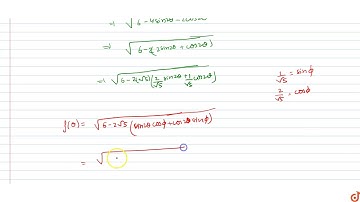 ⇒ √(6-4sin2θ-2cos2θ)
⇒ √(6-2(2sin2θ+cos2θ))
⇒ √(6-2(√5)(2/√5 sin2θ+1/√5 cos2θ))
1/√5 = sinϕ
2/√5 = cosϕ
f(θ) = √(6-2√5(sin2θ cosϕ+cos2θ sinϕ))
= √